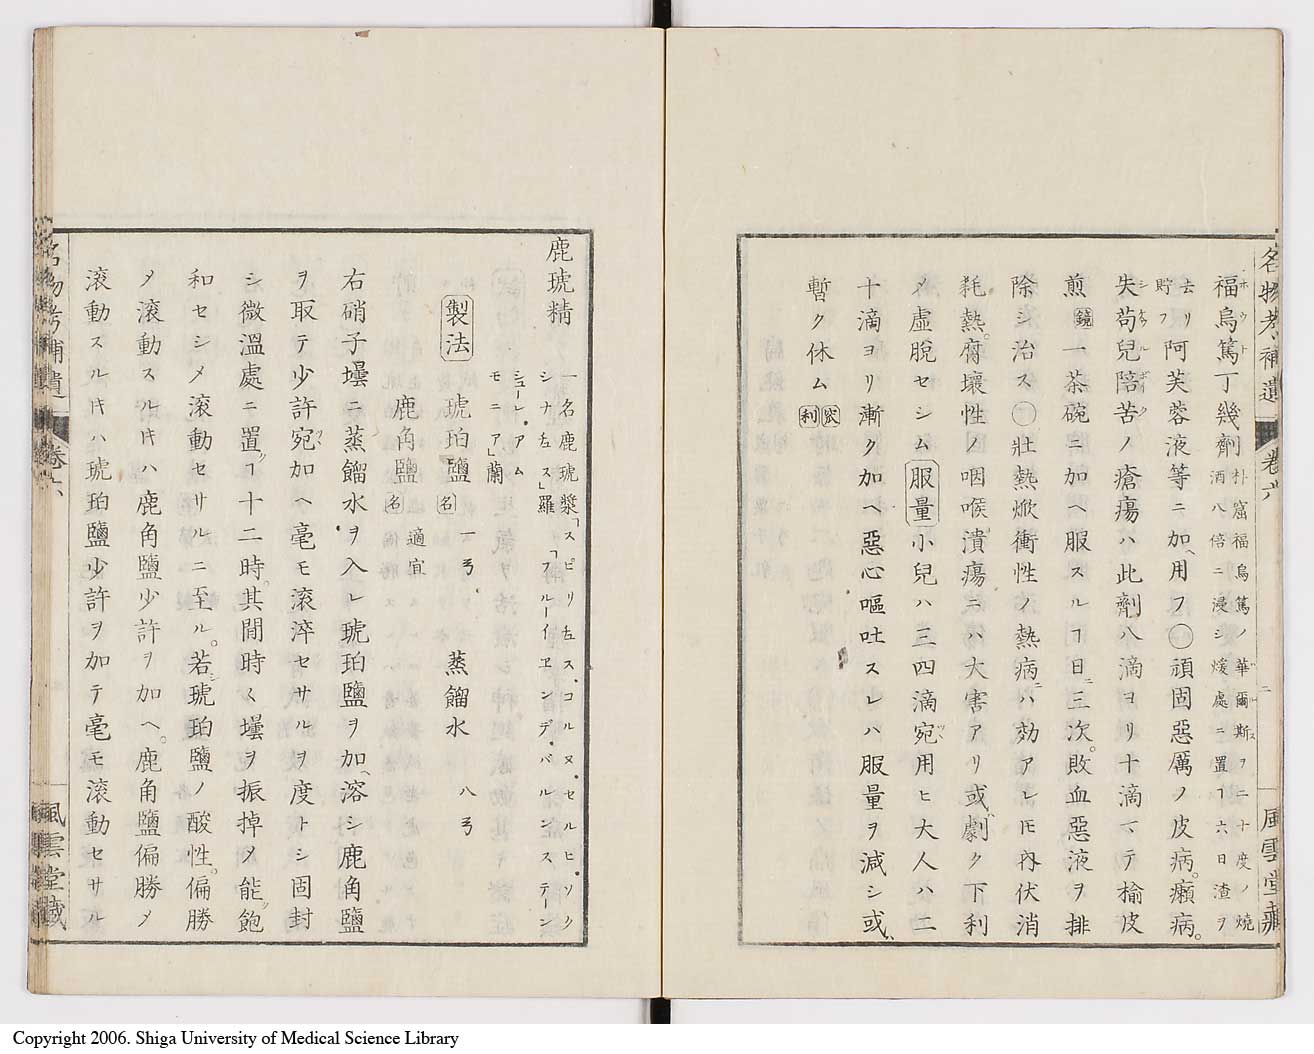 名物考補遺 卷六 風雲堂藏
福烏篤丁幾劑 朴窟福烏篤ノ華爾斯ヲ二十度ノ燒
酒八倍ニ浸シ煖處ニ置ヿ六日渣ヲ
去リ貯フ 阿芙蓉液等ニ加ヘ用フ〇頑固惡厲ノ皮病。癩病。
失苟兒陪苦ノ瘡瘍ハ此劑八滴ヨリ十滴マテ楡皮
煎 鏡 一茶碗ニ加ヘ服スルヿ日ニ三次。敗血惡液ヲ排
除シ治ス〇壯熱焮衝性ノ熱病ニハ効アレ𪜈內伏消
耗熱。腐壞性ノ咽喉潰瘍ニハ大害アリ或ハ劇ク下利
〆虛脫セシム 服量 小兒ハ三四滴宛ツヽ用ヒ大人ハ二
十滴ヨリ漸ク加ヘ惡心嘔吐スレハ服量ヲ減シ或ハ
暫ク休ム 利
鹿琥精 一名鹿琥漿「スピリtュス.コルヌ.セルヒ.ソク
シナtュス」羅「フルーイエンデ.バルンステーン
シューレ.アム
モニア」蘭
製法 琥珀鹽 名 一弓 蒸餾水 八弓
鹿角鹽 名 適宜
右硝子壜ニ蒸餾水ヲ入レ琥珀鹽ヲ加ヘ溶シ鹿角鹽
ヲ取テ少許宛ツヽ加ヘ毫モ滾滓セサルヲ度トシ固封
シ微溫處ニ置ヿ十二時。其間時々壜ヲ振掉〆能ク飽
和セシメ滾動セサルニ至ル。若シ琥珀鹽ノ酸性。偏勝
〆滾動スル𪜈ハ鹿角鹽少許ヲ加ヘ。鹿角鹽偏勝〆
滾動スル𪜈ハ琥珀鹽少許ヲ加テ毫モ滾動セサル
名物考補遺 卷六 風雲堂藏
Copyright 2006. Shiga University of Medical Science Library